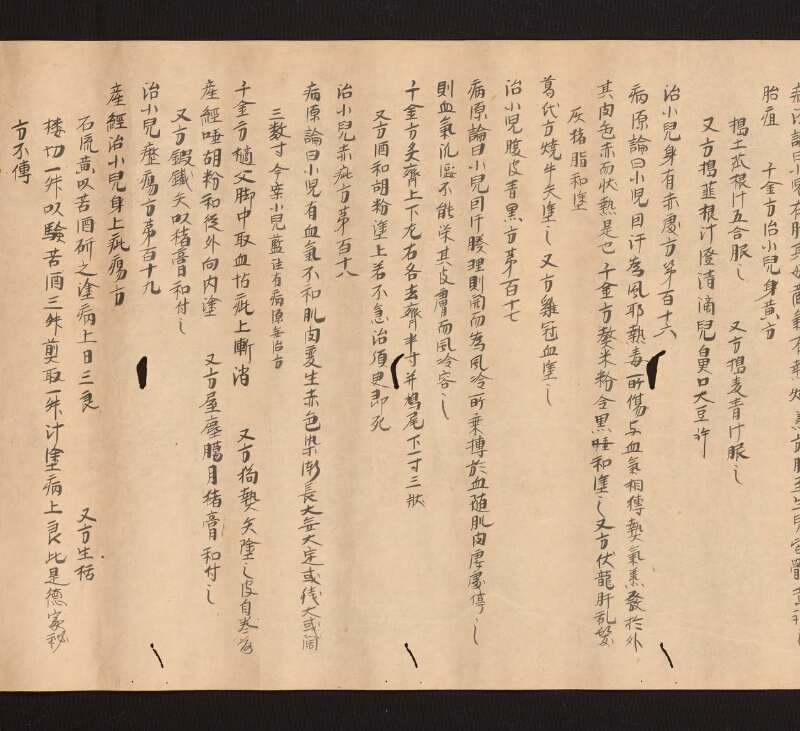 胎疸　千金方治小兒身黄方
搗土苽根汁五合服之　又方搗麦青汁服之
又方搗韮根汁澄清滴兒鼻口大豆許
治小兒身有赤處方第百十六
病源論曰小兒因汗為風耶熱毒所傷与血氣相搏熱氣蒸發於外
其肉色赤而状熱是也　千金方熬米粉令黒唾和塗之又方伏龍肝乱髪
灰猪脂和塗
葛氏方燒牛矢塗之又方雞冠血塗之
治小兒腹皮青黒方第百十七
病源論曰小兒因汗腠理則開而為風冷所乗搏於血随肌肉虚處停之
則血氣沉澁不能栄其皮膚而風冷客之
千金方灸齊上下左右各去齊半寸并鳩尾下一寸三壮
又方酒和胡粉塗上若不急治須臾即死
治小兒赤疵方第百十八
病源論曰小兒有血氣不和肌肉變生赤色染漸長大無大定或錢大或闊
三數寸　今案小兒藍注有病源無治方
千金方樋父脚中取血怗疵上漸消　又方狗熱矢塗之皮自巻落
産經唾胡粉和従外向内塗　又方屋塵臈月猪膏和付之
又方鍛鐵矢以猪膏和付之
治小兒瘍方第百十九
産經治小兒身上疵瘍方
石流黄以苦酒研之塗病上日三良　又方生栝
楼切一舛以驗苦酒三舛煎取一舛汁塗病上良此是徳家秘
方不傳